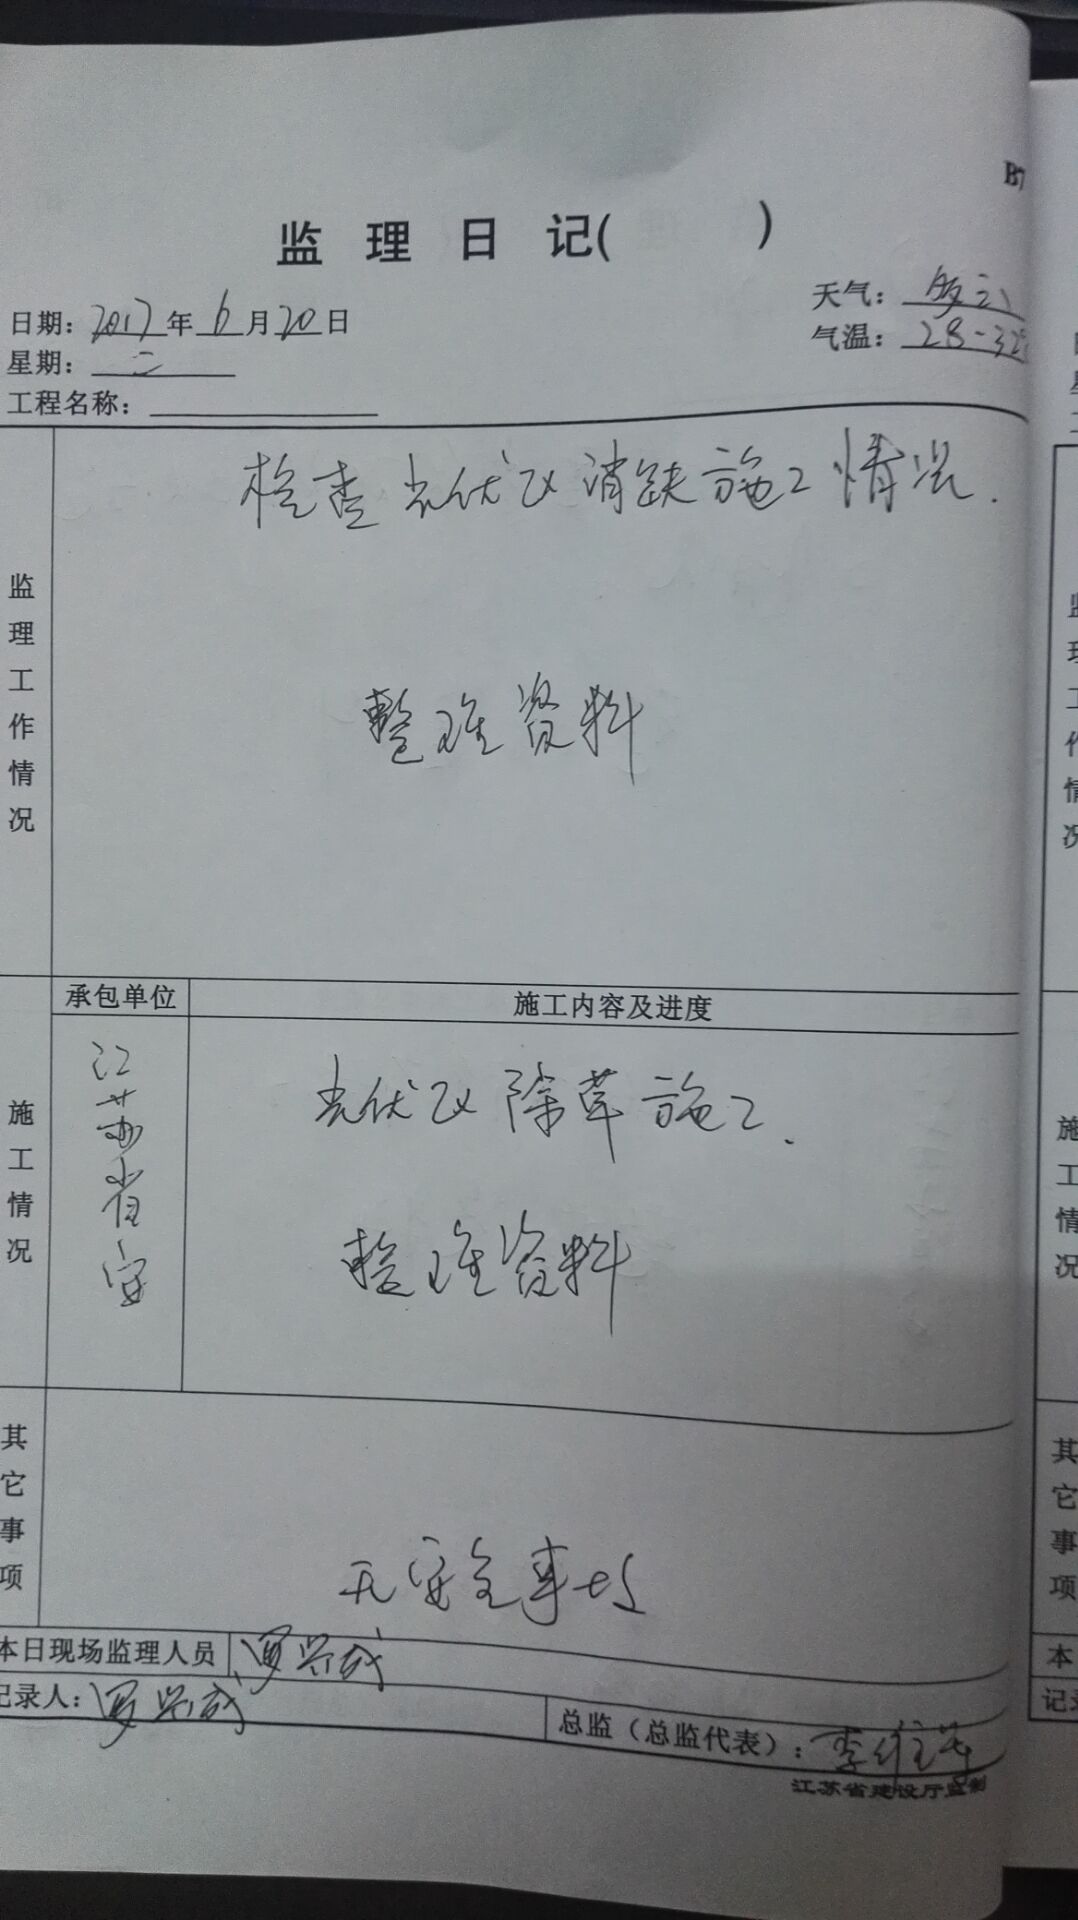 B7
监理日记( )
日期: 2017年6月20日
天气: 多云
星期: 二
气温: 28-32
工程名称:
监理工作情况
检查光伏区消缺施工情况.
整理资料
施工情况
承包单位
施工内容及进度
江苏省安
光伏区除草施工.
整理资料
其它事项
无安全事故
本日现场监理人员
记录人:
总监（总监代表）: 李维华
江苏省建设厅监制